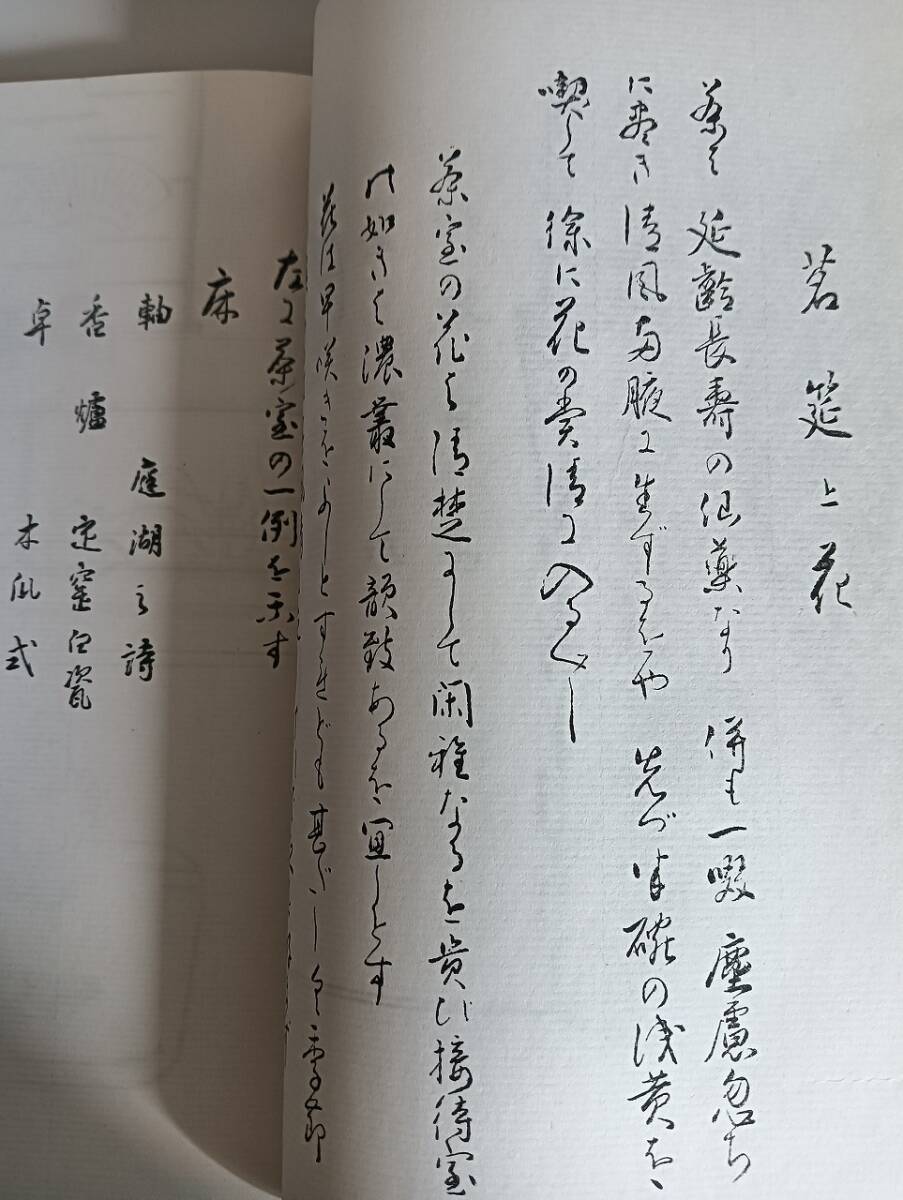 茗筵上花
茶は延齢長寿の仙薬なり併も一啜塵慮忽ち
に尽き清風両腋に生ずるをや先づ半碗の浅黄を
喫して徐に花の賞清に入るべし
茶室の花は清楚にして閑雅なるを貴び接待室
の如きは濃叢にして韻致あるを宜しとす
花は早咲きをよしとすれども甚だしく季節
左に茶室の一例を示す
床
軸 庭湖之詩
香爐 定窯白瓷
卓 木瓜式